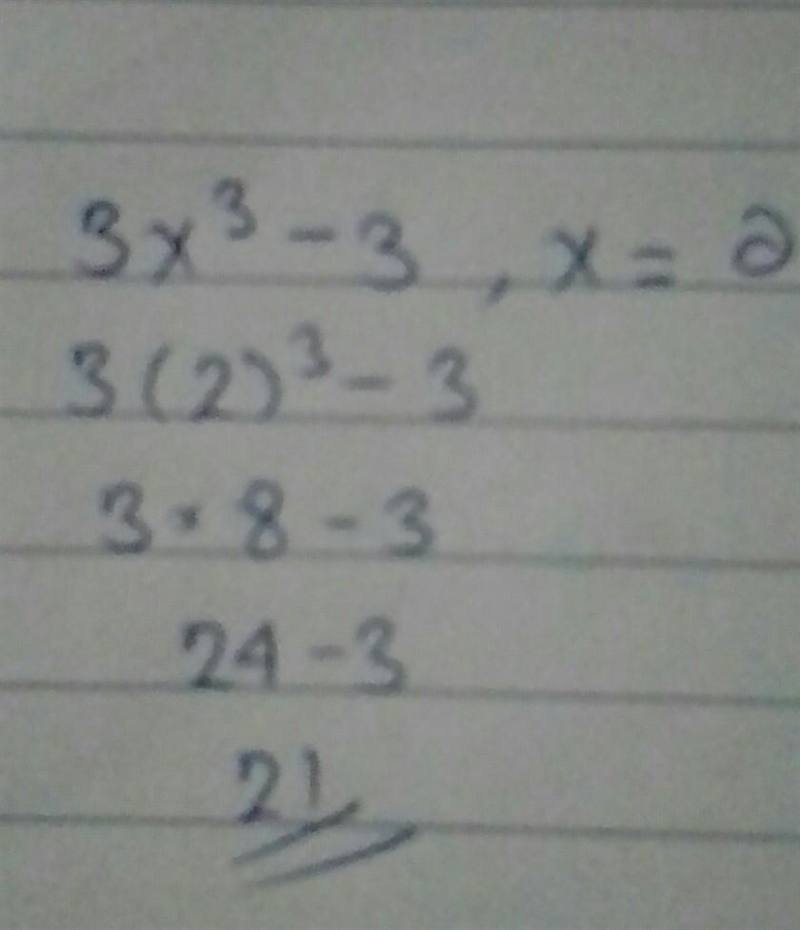 3x³ - 3 , x = 2
3(2)³ - 3
3 · 8 - 3
24 - 3
21